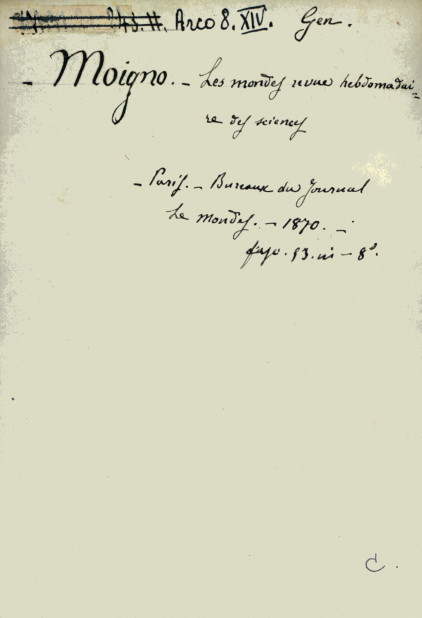 Arco 8. XIV. Gen.
- Moigno. - Les mondes revue hebdomadai=
re des sciences
- Paris. - Bureaux du Journal
Le mondes. - 1870. -
in - 8º.
C.